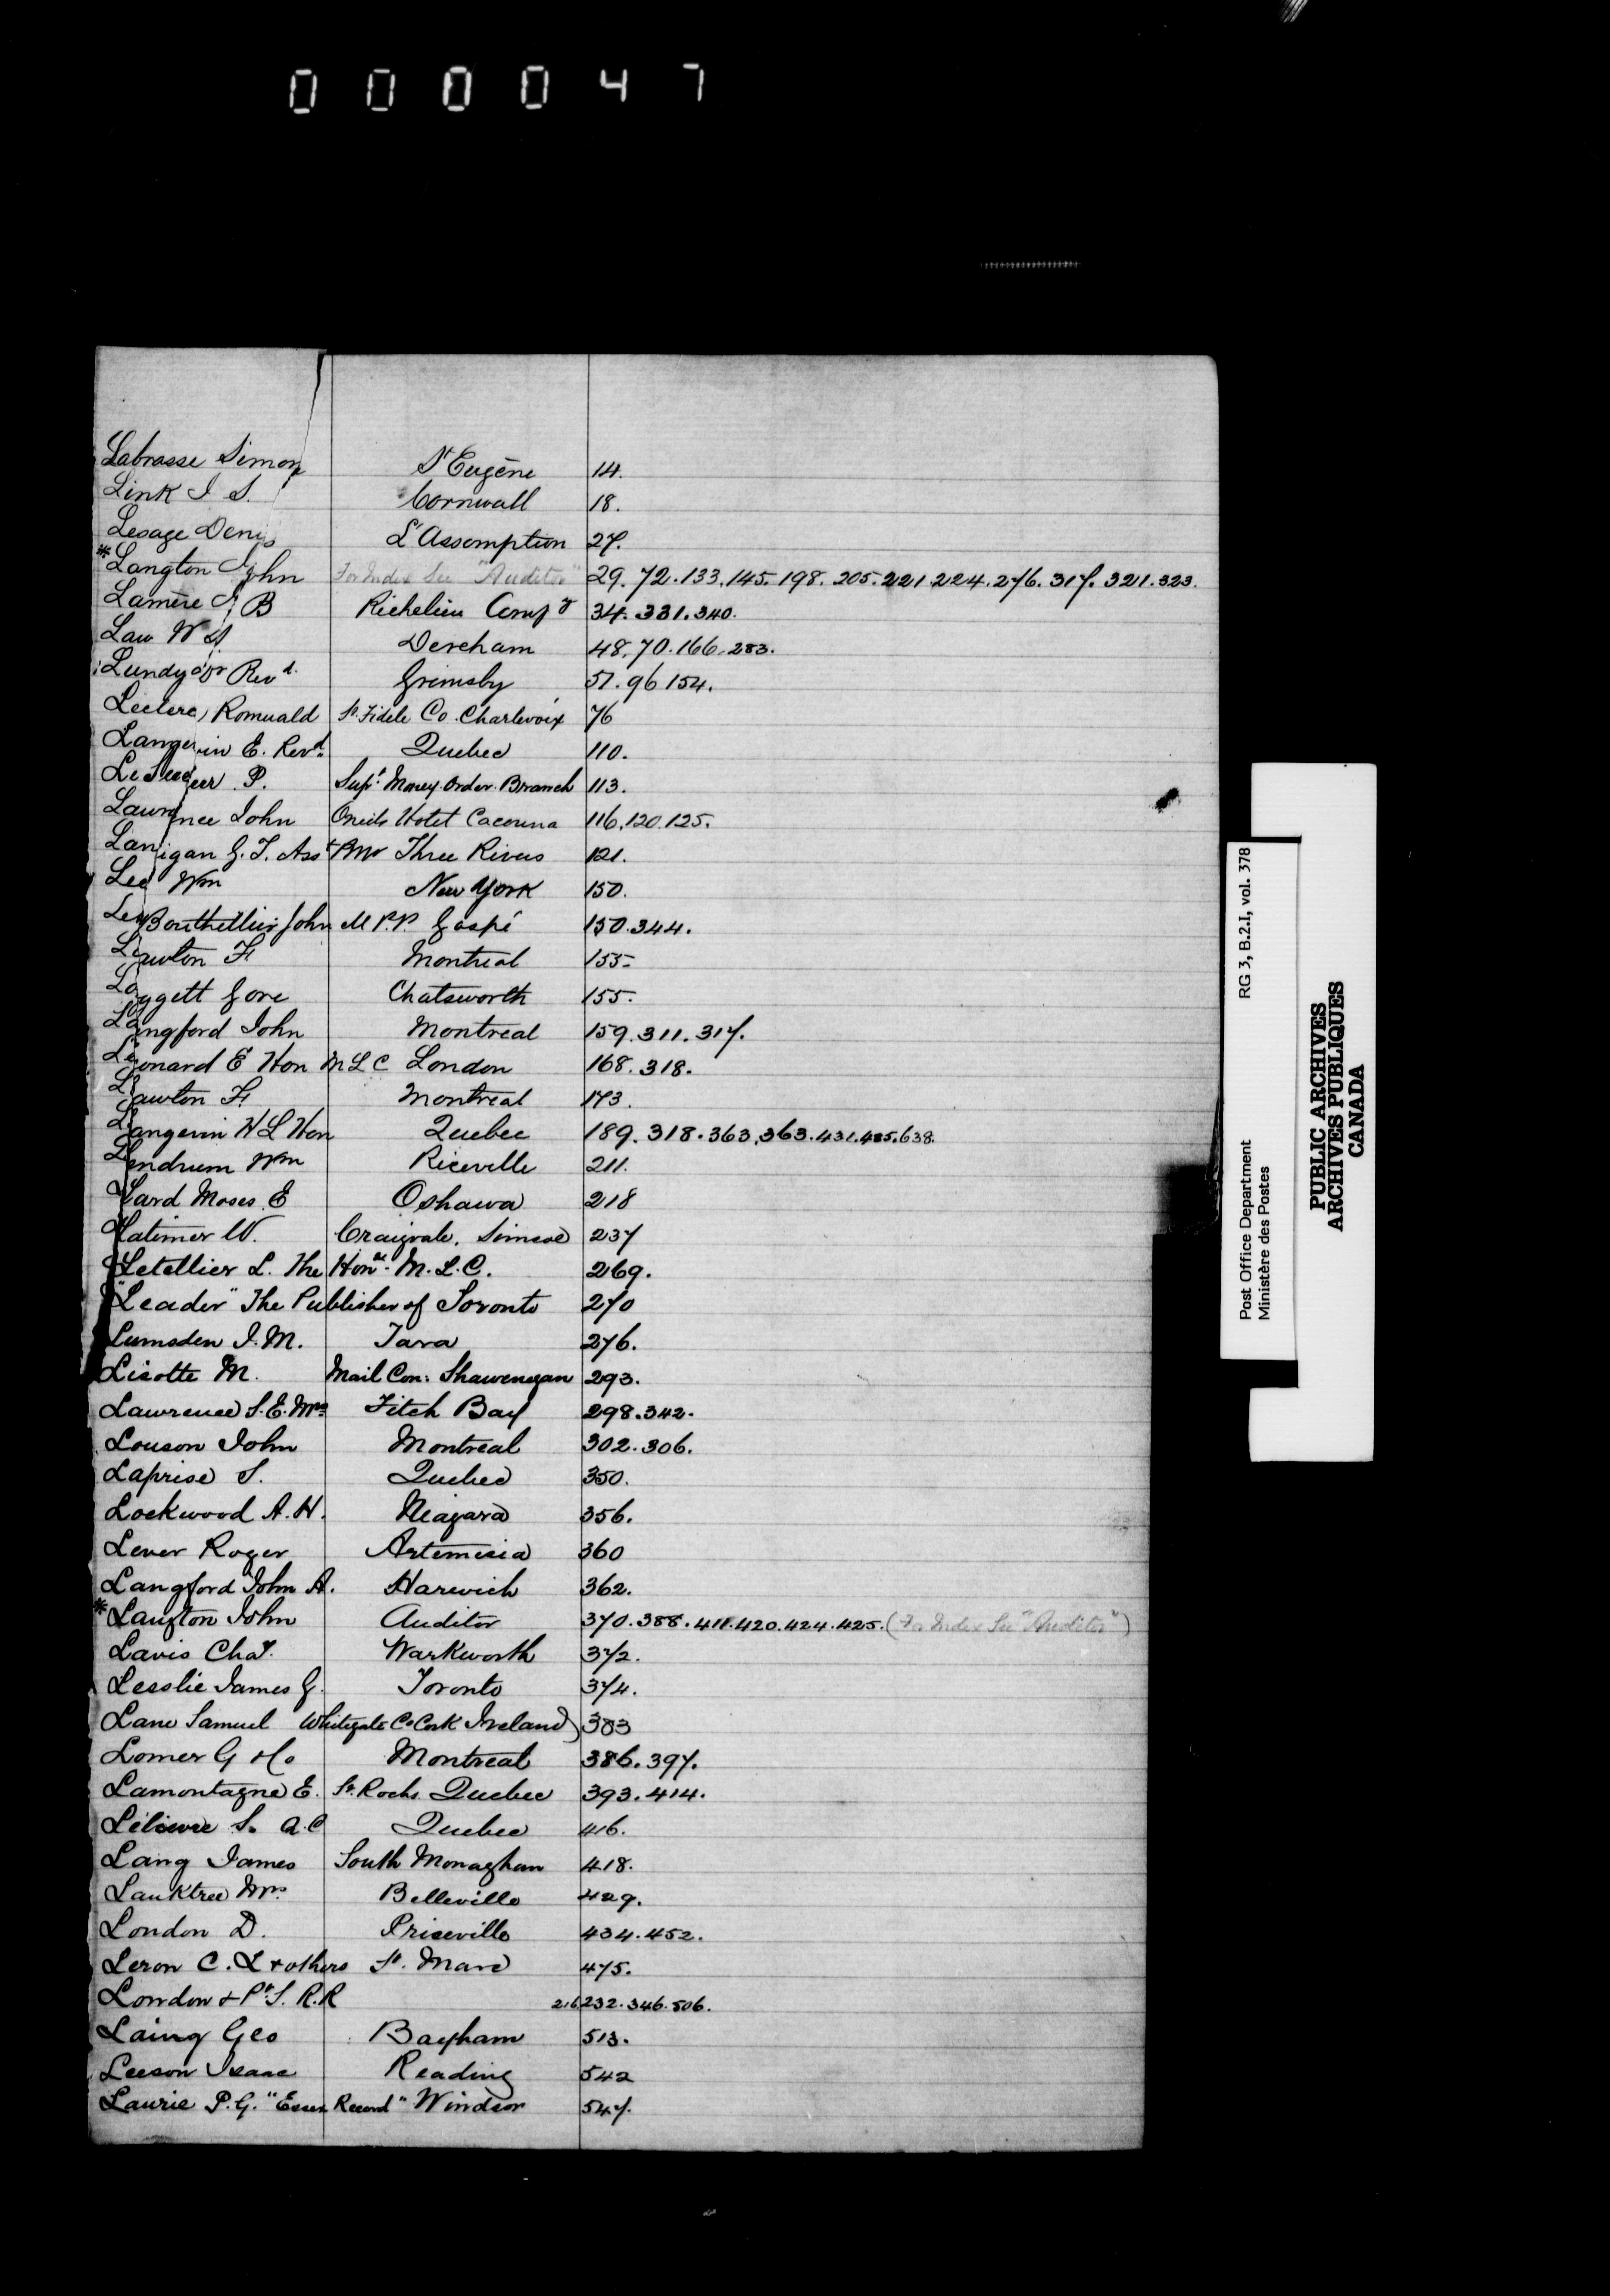 000047
Labrasse Simon St Eugène 14.
Link J S. Cornwall 18.
Lesage Denis L'Assomption 27.
*Langton John For Index See "Auditor" 29.72.133.145.198.205.221.224.276.317.321.323.
Lamère J B Richelieu Compy 34.331.340.
Law W S. Dereham 48.70.166.283.
Lundy Revd. Grimsby 51.96 154.
Leclerc, Romuald St. Fidele Co. Charlevoix 76
Langevin E. Revd. Quebec 110.
LeSueur P. Supt. Money Order Branch 113.
Lawrence John Oneils Hotel Cacouna 116.120.125.
Lanigan G. T. Asst P Mr Three Rivers 121.
Lee Wm New York 150.
Le Bouthellier John M P.P Gaspé 150.344.
Lawton F. Montreal 155
Leggett Gore Chatsworth 155.
Langford John Montreal 159.311.317.
Leonard E Hon M L C London 168.318.
Lawton F. Montreal 173.
Langevin H L Hon Quebec 189.318.363.363.431.485.638.
Lendrum Wm Riceville 211.
Lard Moses E Oshawa 218
Latimer W. Craigvale. Simcoe 237
Letellier L. The Honle. M.L.C. 269.
"Leader" The Publisher of Toronto 270
Lumsden J.M. Tara 276.
Lisotte M. Mail Con: Shawenegan 293.
Lawrence S.E. Mrs Fitch Bay 298.342.
Louson John Montreal 302.306.
Laprise S. Quebec 350.
Lockwood A.H. Niagara 356.
Lever Roger Artemesia 360
Langford John A. Harwich 362.
*Langton John Auditor 370.388.411.420.424.425. (For Index See "Auditor")
Lavis Chas. Warkworth 372.
Lesslie James G. Toronto 374.
Lane Samuel Whitegate Co Cork Ireland) 383
Lomer G & Co Montreal 386.397.
Lamontagne E. St. Rochs Quebec 393.414.
Lélievre S. Q.C Quebec 416.
Lang James South Monaghan 418.
Lanktree Mrs. Belleville 429.
London D. Priceville 434.452.
Leron C. L & others St. Marc 475.
London & Pt. S. R.R 216.232.346.506.
Laing Geo Bayham 513.
Leeson Isaac Reading 542
Laurie P.G. "Essex Record" Windsor 547.
Post Office Department RG 3, B.2.I, vol. 378
Ministère des Postes
PUBLIC ARCHIVES
ARCHIVES PUBLIQUES
CANADA